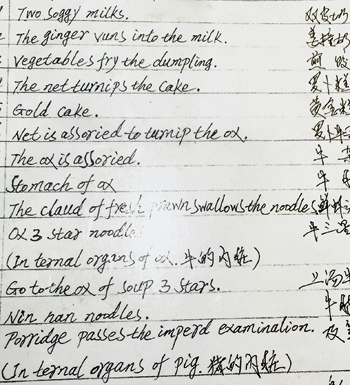 Two soggy milks.
The ginger vuns into the milk. 姜撞奶
Vegetables fry the dumpling.
The net turnips the cake. 萝卜糕
Gold cake. 黄金糕
Net is assoried to turnip the ox. 萝卜牛
The ox is assoried. 牛
Stomach of ox 牛
The claud of fresh prawn swallows the noodles
Ox 3 star noodle 牛三星
(In ternal organs of ox. 牛的内脏)
Go to the ox of soup 3 stars. 上汤牛
Nin han noodles. 牛腩
Porridge passes the imperd examinalion. 及
(In ternal organs of pig. 猪的内脏)